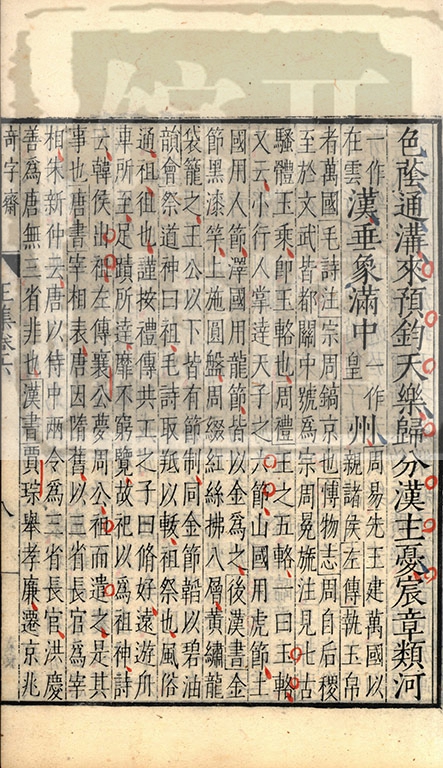 色蔭通溝來預鈞天樂歸分漢主憂宸章類河
一作在雲漢垂象滿中一作皇州周易先王建萬國以親諸侯左傳執玉帛
者萬國毛詩注宗周鎬京也博物志周自后稷
至於文武皆都關中號爲宗周冕旒注見七古
騷體玉乘即玉輅也周禮王之五輅一曰玉輅
又云小行人掌達天子之六節山國用虎節土
國用人節澤國用龍節皆以金爲之後漢書金
節黑漆竿上施圓盤周綴紅絲拂八層黃繡龍
袋籠之王公以下皆有節制同金節韜以碧油
韻會祭道神曰祖毛詩取羝以軷祖祭也風俗
通祖徂也謹按禮傳共工之子曰脩好遠遊舟
車所至足蹟所達靡不窮覽故祀以爲祖神詩
云韓侯出祖左傳襄公夢周公祖而遣之是其
事也唐書宰相表唐因隋舊以三省長官爲宰
相朱新仲云唐以侍中兩令爲三省長官洪慶
善爲唐無三省非也漢書賈琮舉孝廉遷京兆
奇字齋 王集卷六 八